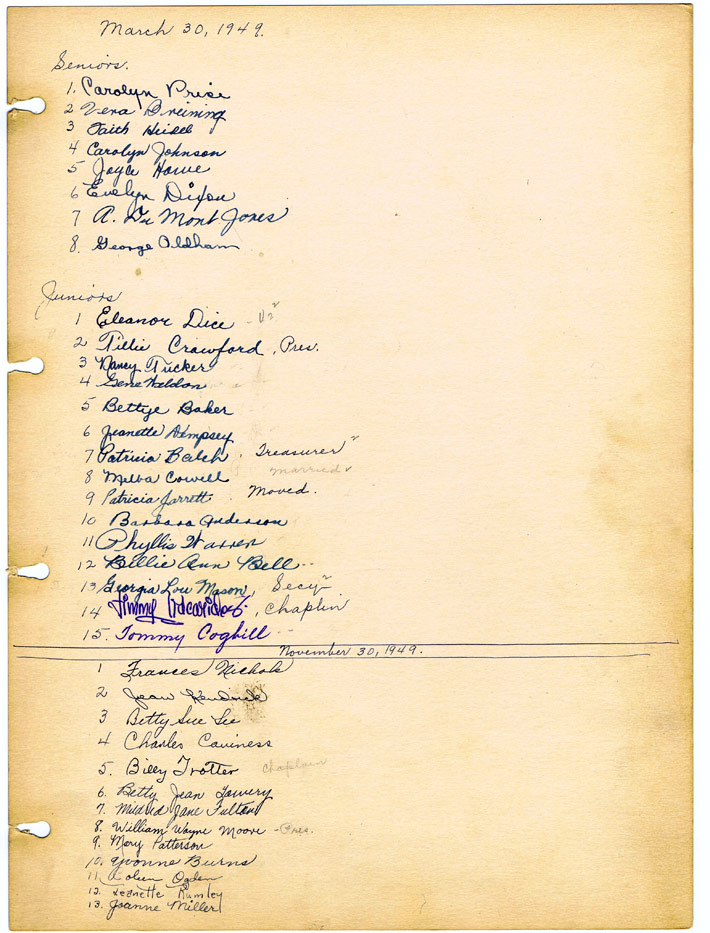 March 30, 1949.
Seniors.
1. Carolyn Price
2 Vera Breining
3 Faith Heidel
4 Carolyn Johnson
5 Joyce Howe
6 Evelyn Dixon
7 A. Du Mont Jones
8. George Oldham
Juniors
1 Eleanor Dice -
2 Tillie Crawford, Pres.
3 Nancy Tucker
4 Gene Weldon
5 Bettye Baker
6 Jeanette Dempsey
7 Patricia Balch. Treasurer
8 Melba Cowell married
9 Patricia Jarrett. Moved.
10 Barbara Anderson
11 Phyllis Warren
12 Billie Ann Bell
13 Georgia Lou Mason, Secy
14 Jimmy , Chaplin
15. Tommy Coghill
November 30, 1949.
1 Frances Nichols
2 Jean Kendrick
3 Betty Sue Lee
4 Charles Caviness
5. Billy Trotter Chaplain
6. Betty Jean Lowery
7. Mildred Jane Fulton
8. William Wayne Moore - Pres.
9. Mary Patterson
10. Yvonne Burns
11. Ogden
12. Jeanette Rumley
13. Joanne Miller